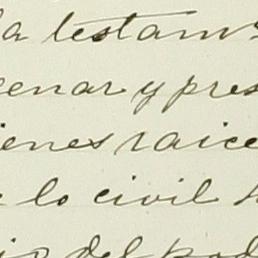 la testam
enar y pres
ienes raice
e lo civil
del pod